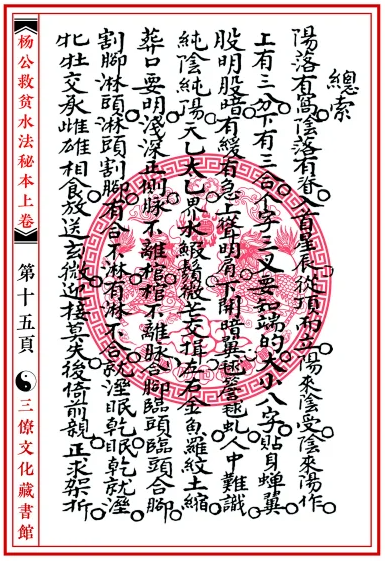 總索
陽落有窩陰落有脊入首星辰從頂而立陽來陰受陰來陽作
上有三分下有三合个字三叉要知端的大小八字貼身蟬翼
股明股暗有緩有急上聲明肩下開暗翼毬簷毬虬人中難識
純陰純陽天乙太乙界水蝦鬚微茫交揖左右金魚羅紋土縮
葬口要明淺深正側脉不離棺棺不離脉合腳臨頭臨頭合腳
割腳淋頭淋頭割腳有合不淋有淋不合就溼眠乾眠乾就溼
牝牡交承雌雄相食放送玄微迎接莫失後倚前親正求架折
杨公救贫水法秘本上卷
第十五頁
三僚文化藏書館